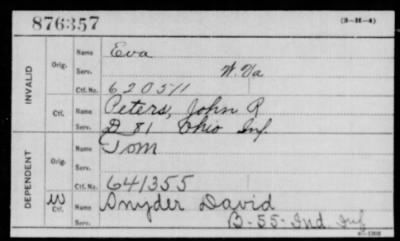 876357
(3-H-4)
INVALID
Orig.
Name Eva
Serv. W. Va
Ctf. No. 620511
Ctf.
Name Peters, John R
Serv. D 81 Ohio Inf.
DEPENDENT
Orig.
Name Tom
Serv.
Ctf. No. 641355
W
Ctf.
Name Snyder David
Serv. B-55-Ind. Inf